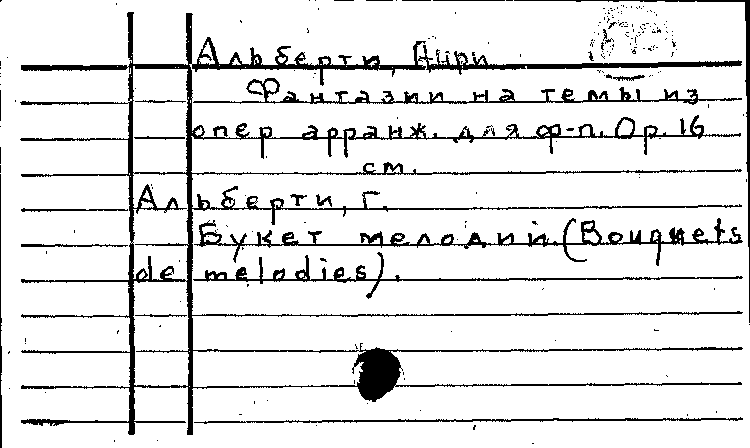 Альберти, Анри
Фантазии на темы из
опер арранж. для ф-п. Op. 16
см.
Альберти, Г.
Букет мелодий. (Bouquets
de melodies).